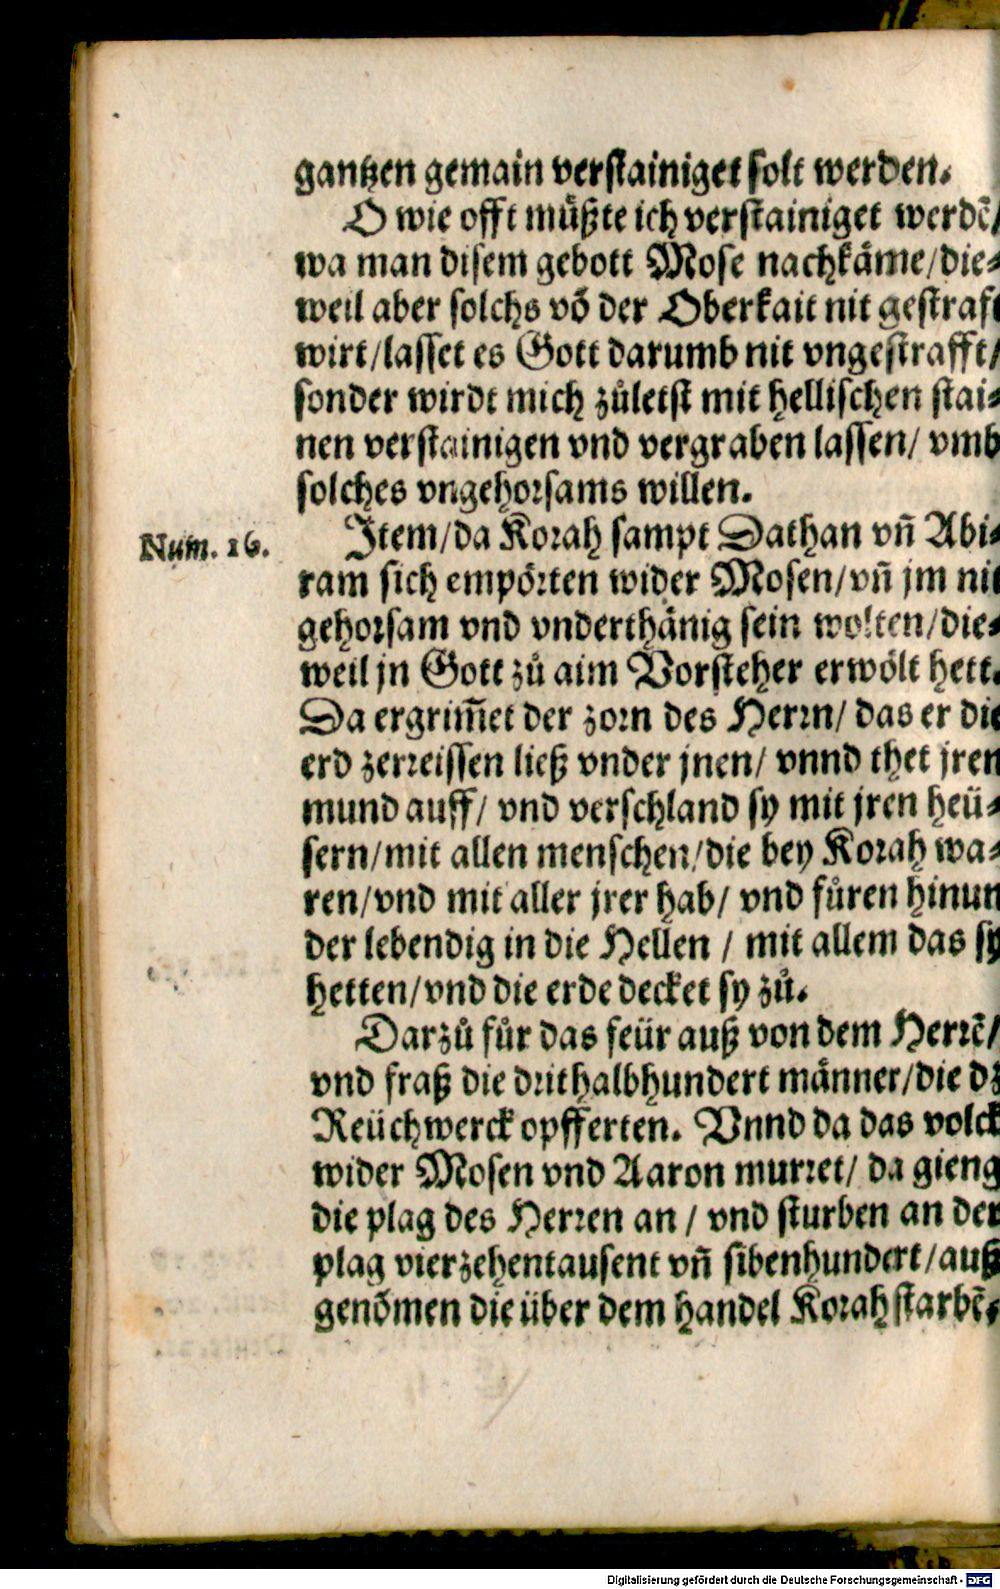 gantzen gemain verstainiget solt werden.
O wie offt müßte ich verstainiget werdē/
wa man disem gebott Mose nachkäme/die⸗
weil aber solchs võ der Oberkait nit gestraft
wirt/lasset es Gott darumb nit vngestrafft/
sonder wirdt mich zůletst mit hellischen stai⸗
nen verstainigen vnd vergraben lassen/ vmb
solches vngehorsams willen.
Num. 16.
Item/da Korah sampt Dathan vñ Abi⸗
ram sich empörten wider Mosen/vñ jm nit
gehorsam vnd vnderthänig sein wolten/die⸗
weil jn Gott zů aim Vorsteher erwölt hett.
Da ergrim̃et der zorn des Herrn/ das er die
erd zerreissen ließ vnder jnen/ vnnd thet jren
mund auff/ vnd verschland sy mit jren heü⸗
sern/mit allen menschen/die bey Korah wa⸗
ren/vnd mit aller jrer hab/ vnd fůren hinun
der lebendig in die Hellen / mit allem das sy
hetten/vnd die erde decket sy zů.
Darzů fůr das feür auß von dem Herrē/
vnd fraß die drithalbhundert männer/die dz
Reüchwerck opfferten. Vnnd da das volck
wider Mosen vnd Aaron murret/ da gieng
die plag des Herren an / vnd sturben an der
plag vierzehentausent vñ sibenhundert/auß
genõmen die über dem handel Korah starbē.
Digitalisierung gefördert durch die Deutsche Forschungsgemeinschaft - DFG